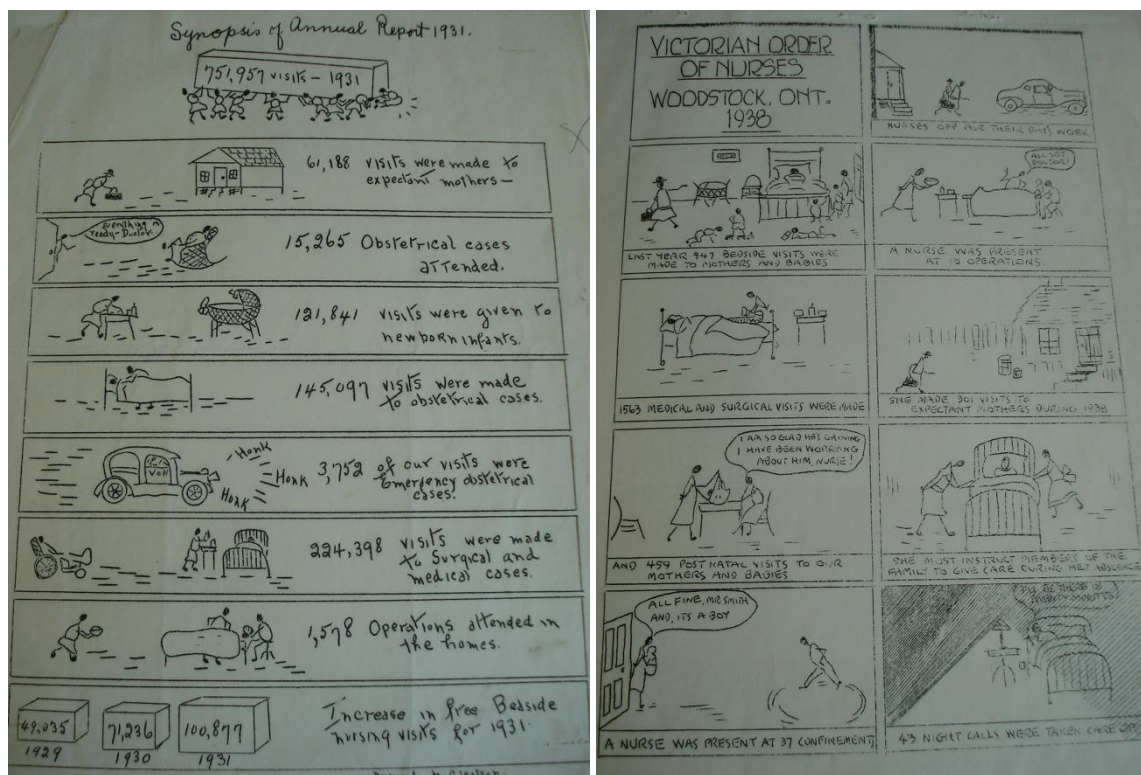 Synopsis of Annual Report 1931.
751,957 visits – 1931
61,188 visits were made to
expectant mothers –
Everything is
ready – Doctor.
15,265 Obstetrical cases
attended.
121,841 visits were given to
newborn infants.
145,097 visits were made
to obstetrical cases.
VON
Honk
Honk
Honk
3,752 of our visits were
Emergency obstetrical
cases.
224,398 visits were made
to Surgical and
medical cases.
1,578 Operations attended in
the homes.
49,035
1929
71,236
1930
100,877
1931
Increase in free Bedside
nursing visits for 1931.
VICTORIAN ORDER
OF NURSES
WOODSTOCK, ONT.
1938
NURSES OFF FOR THEIR DAYS WORK
LAST YEAR 947 BEDSIDE VISITS WERE
MADE TO MOTHERS AND BABIES
ALL SET
DOCTOR!
A NURSE WAS PRESENT
AT 15 OPERATIONS.
1563 MEDICAL AND SURGICAL VISITS WERE MADE
SHE MADE 301 VISITS TO
EXPECTANT MOTHERS DURING 1938
I AM SO GLAD HE'S GAINING
I HAVE BEEN WORRYING
ABOUT HIM, NURSE!
AND 459 POST NATAL VISITS TO OUR
MOTHERS AND BABIES
SHE MUST INSTRUCT MEMBERS OF THE
FAMILY TO GIVE CARE DURING HER ABSENCE
ALL FINE, MR SMITH
AND, ITS A BOY
A NURSE WAS PRESENT AT 37 CONFINEMENTS
I'LL BE THERE IN
MINUTES
43 NIGHT CALLS WERE TAKEN CARE OF